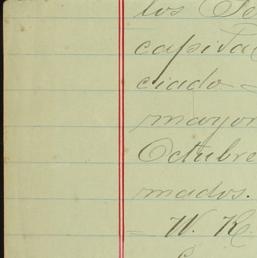 los
capital
ciado
mayor
Octubre
mados.
W. K.